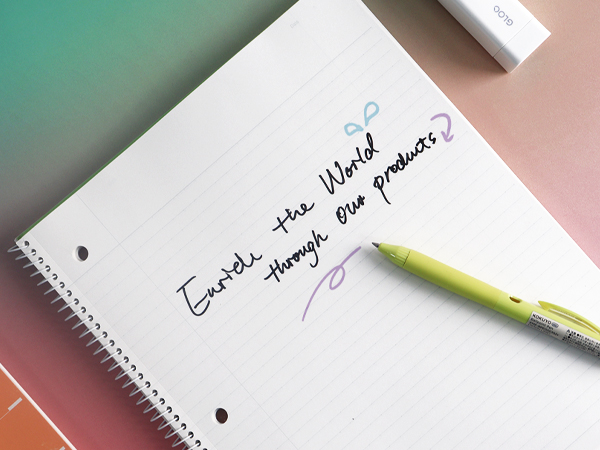 GLOO
Enrich the World
through our products
KOKUYO